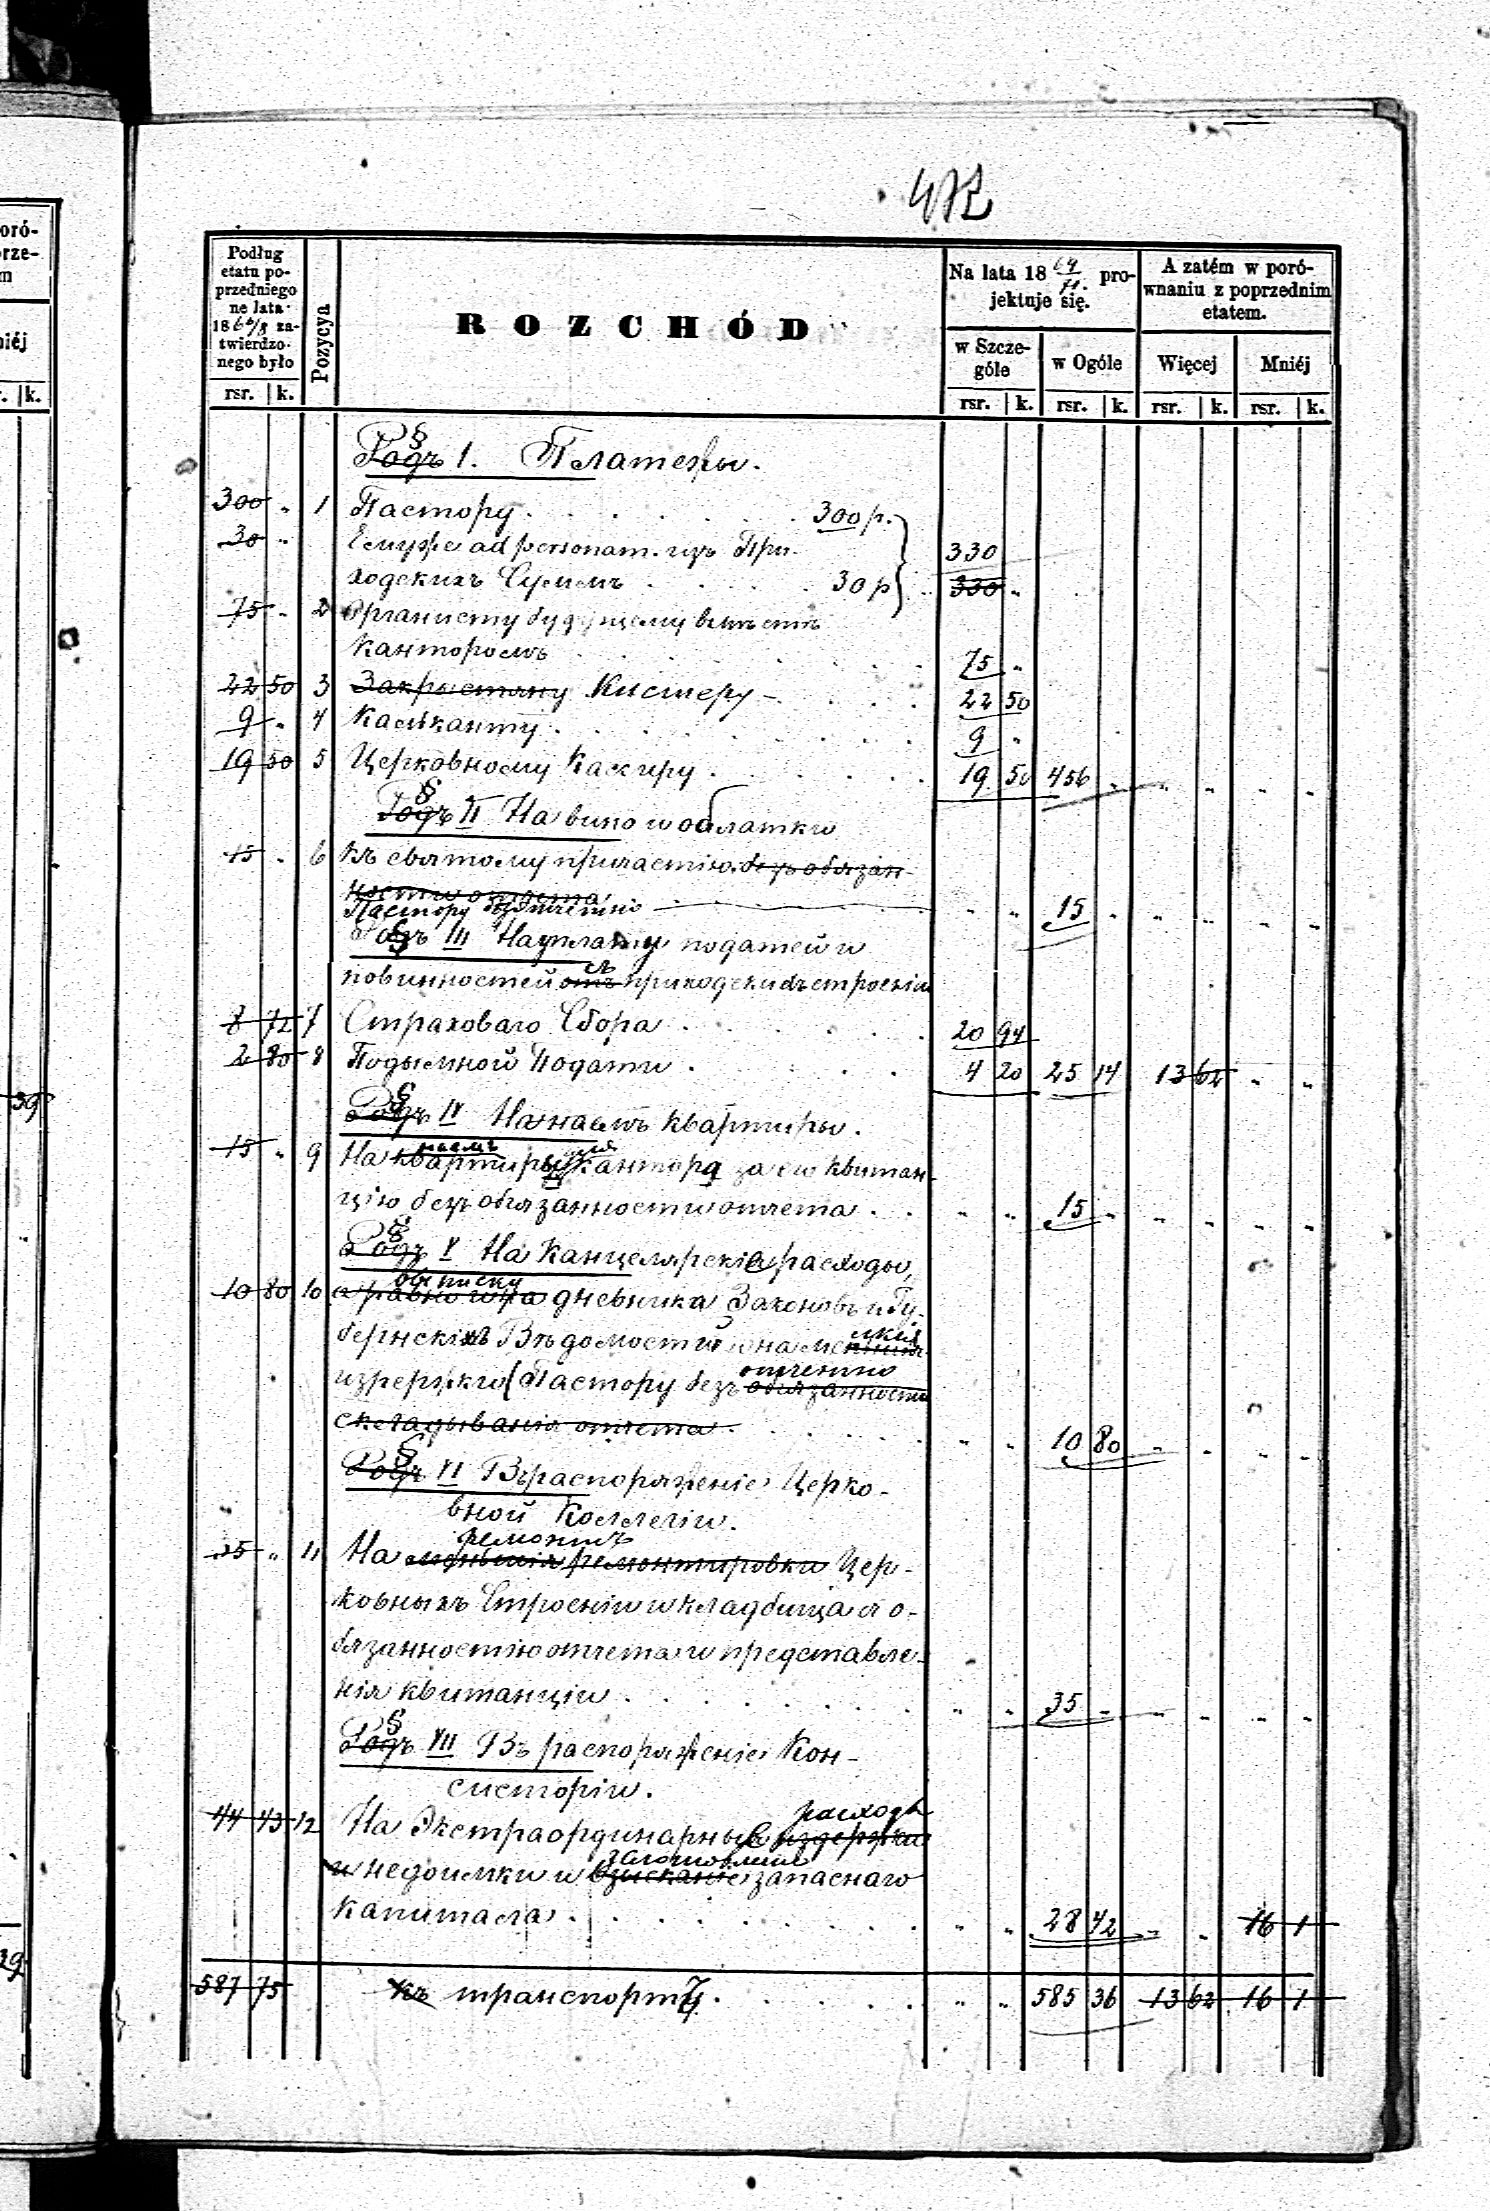 Podług etatu poprzedniego ne lata 1866/8 zatwierdzonego było
Pozycya
ROZCHÓD
Na lata 18 69/71. projektuje się.
A zatém w porównaniu z poprzednim etatem.
w Szczególe
w Ogóle
Więcej
Mniéj
rsr. k. rsr. k. rsr. k. rsr. k. rsr. k.
§
Родъ I. Платежы.
300 „ 1 Пастору . . . 300 р.
30 „ Емуже ad personam. изъ При- 330
ходскихъ Суммъ . . . 30 р 330 „
75 „ 2 Органисту будущему вмѣстѣ
Канторомъ . . . 75 „
22 50 3 Закрыстяну Кистеру - . . . 22 50
9 „ 4 Калканту . . . 9 „
19 50 5 Церковному Кассиру . . . 19 50 456 „ „ „ „ „
§
Родъ II На вино и облатки
15 „ 6 къ святому причастію безъ обязан-
ности отчета
Пастору безотчетно „ „ 15 „ „ „ „ „
§
Родъ III На уплату податей и
повинностей отъ съ приходскихъ строеній
8 72 7 Страховаго Сбора . . . 20 94
2 80 8 Подымной Подати . . . 4 20 25 14 13 62 „ „
§
Родъ IV На наемъ квартиры.
наемъ для
15 „ 9 На квартиры кантора за его квитан-
цію безъ обязанности отчета . . „ „ 15 „ „ „ „ „
§
Родъ V На Канцелярскіе расходы,
выписку
10 80 10 а равно и на дневника Законовъ и Гу-
бернскихъ Вѣдомостей и на мелкія
отчетно
издержки (Пастору безъ обязанности
складыванія отчета . . . „ „ 10 80 „ „ „ „
§
Родъ VI Въ распоряженіе Церко-
вной Коллегіи.
ремонтъ
35 „ 11 На меньшія ремонтировки Цер-
ковныхъ Строеніи и кладбища съ о-
бязанностію отчета и представле-
нія квитанціи . . . „ „ 35 „ „ „ „ „
§
Родъ VII Въ распоряженіе Кон-
систоріи.
расходы
44 43 12 На Экстраординарные издержки
заготовленіе
и недоимки и взысканіе запаснаго
капитала . . . „ „ 28 42 „ „ 16 1
587 75 къ транспорту . . . „ „ 585 36 13 62 16 1
oró-
rze-
m
niéj
k.
39
29